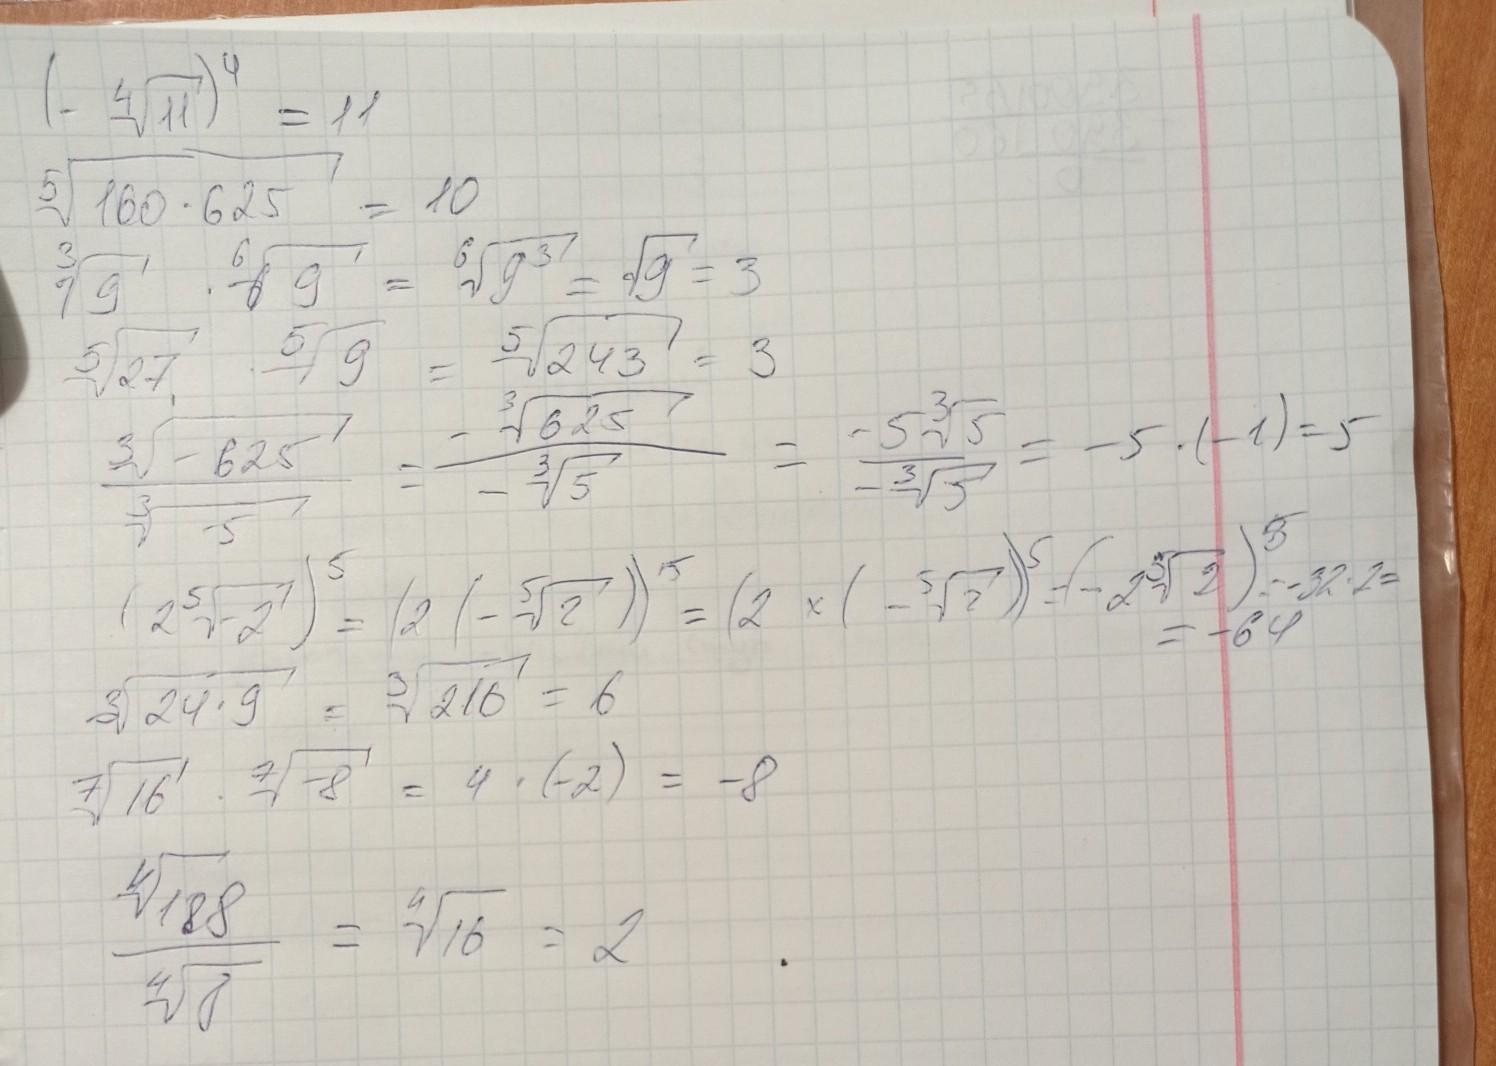 (-⁴√11)⁴ = 11
⁵√160·625 = 10
³√9 · ⁶√9 = ⁶√9³ = √9 = 3
⁵√27 · ⁵√9 = ⁵√243 = 3
³√-625 / ³√-5 = -³√625 / -³√5 = -5³√5 / -³√5 = -5·(-1) = 5
(2⁵√-2)⁵ = (2(-⁵√2))⁵ = (2×(-⁵√2))⁵ = (-2⁵√2)⁵ = -32·2 =
= -64
³√24·9 = ³√216 = 6
⁷√16 · ⁷√-8 = 4·(-2) = -8
⁴√128 / ⁴√8 = ⁴√16 = 2